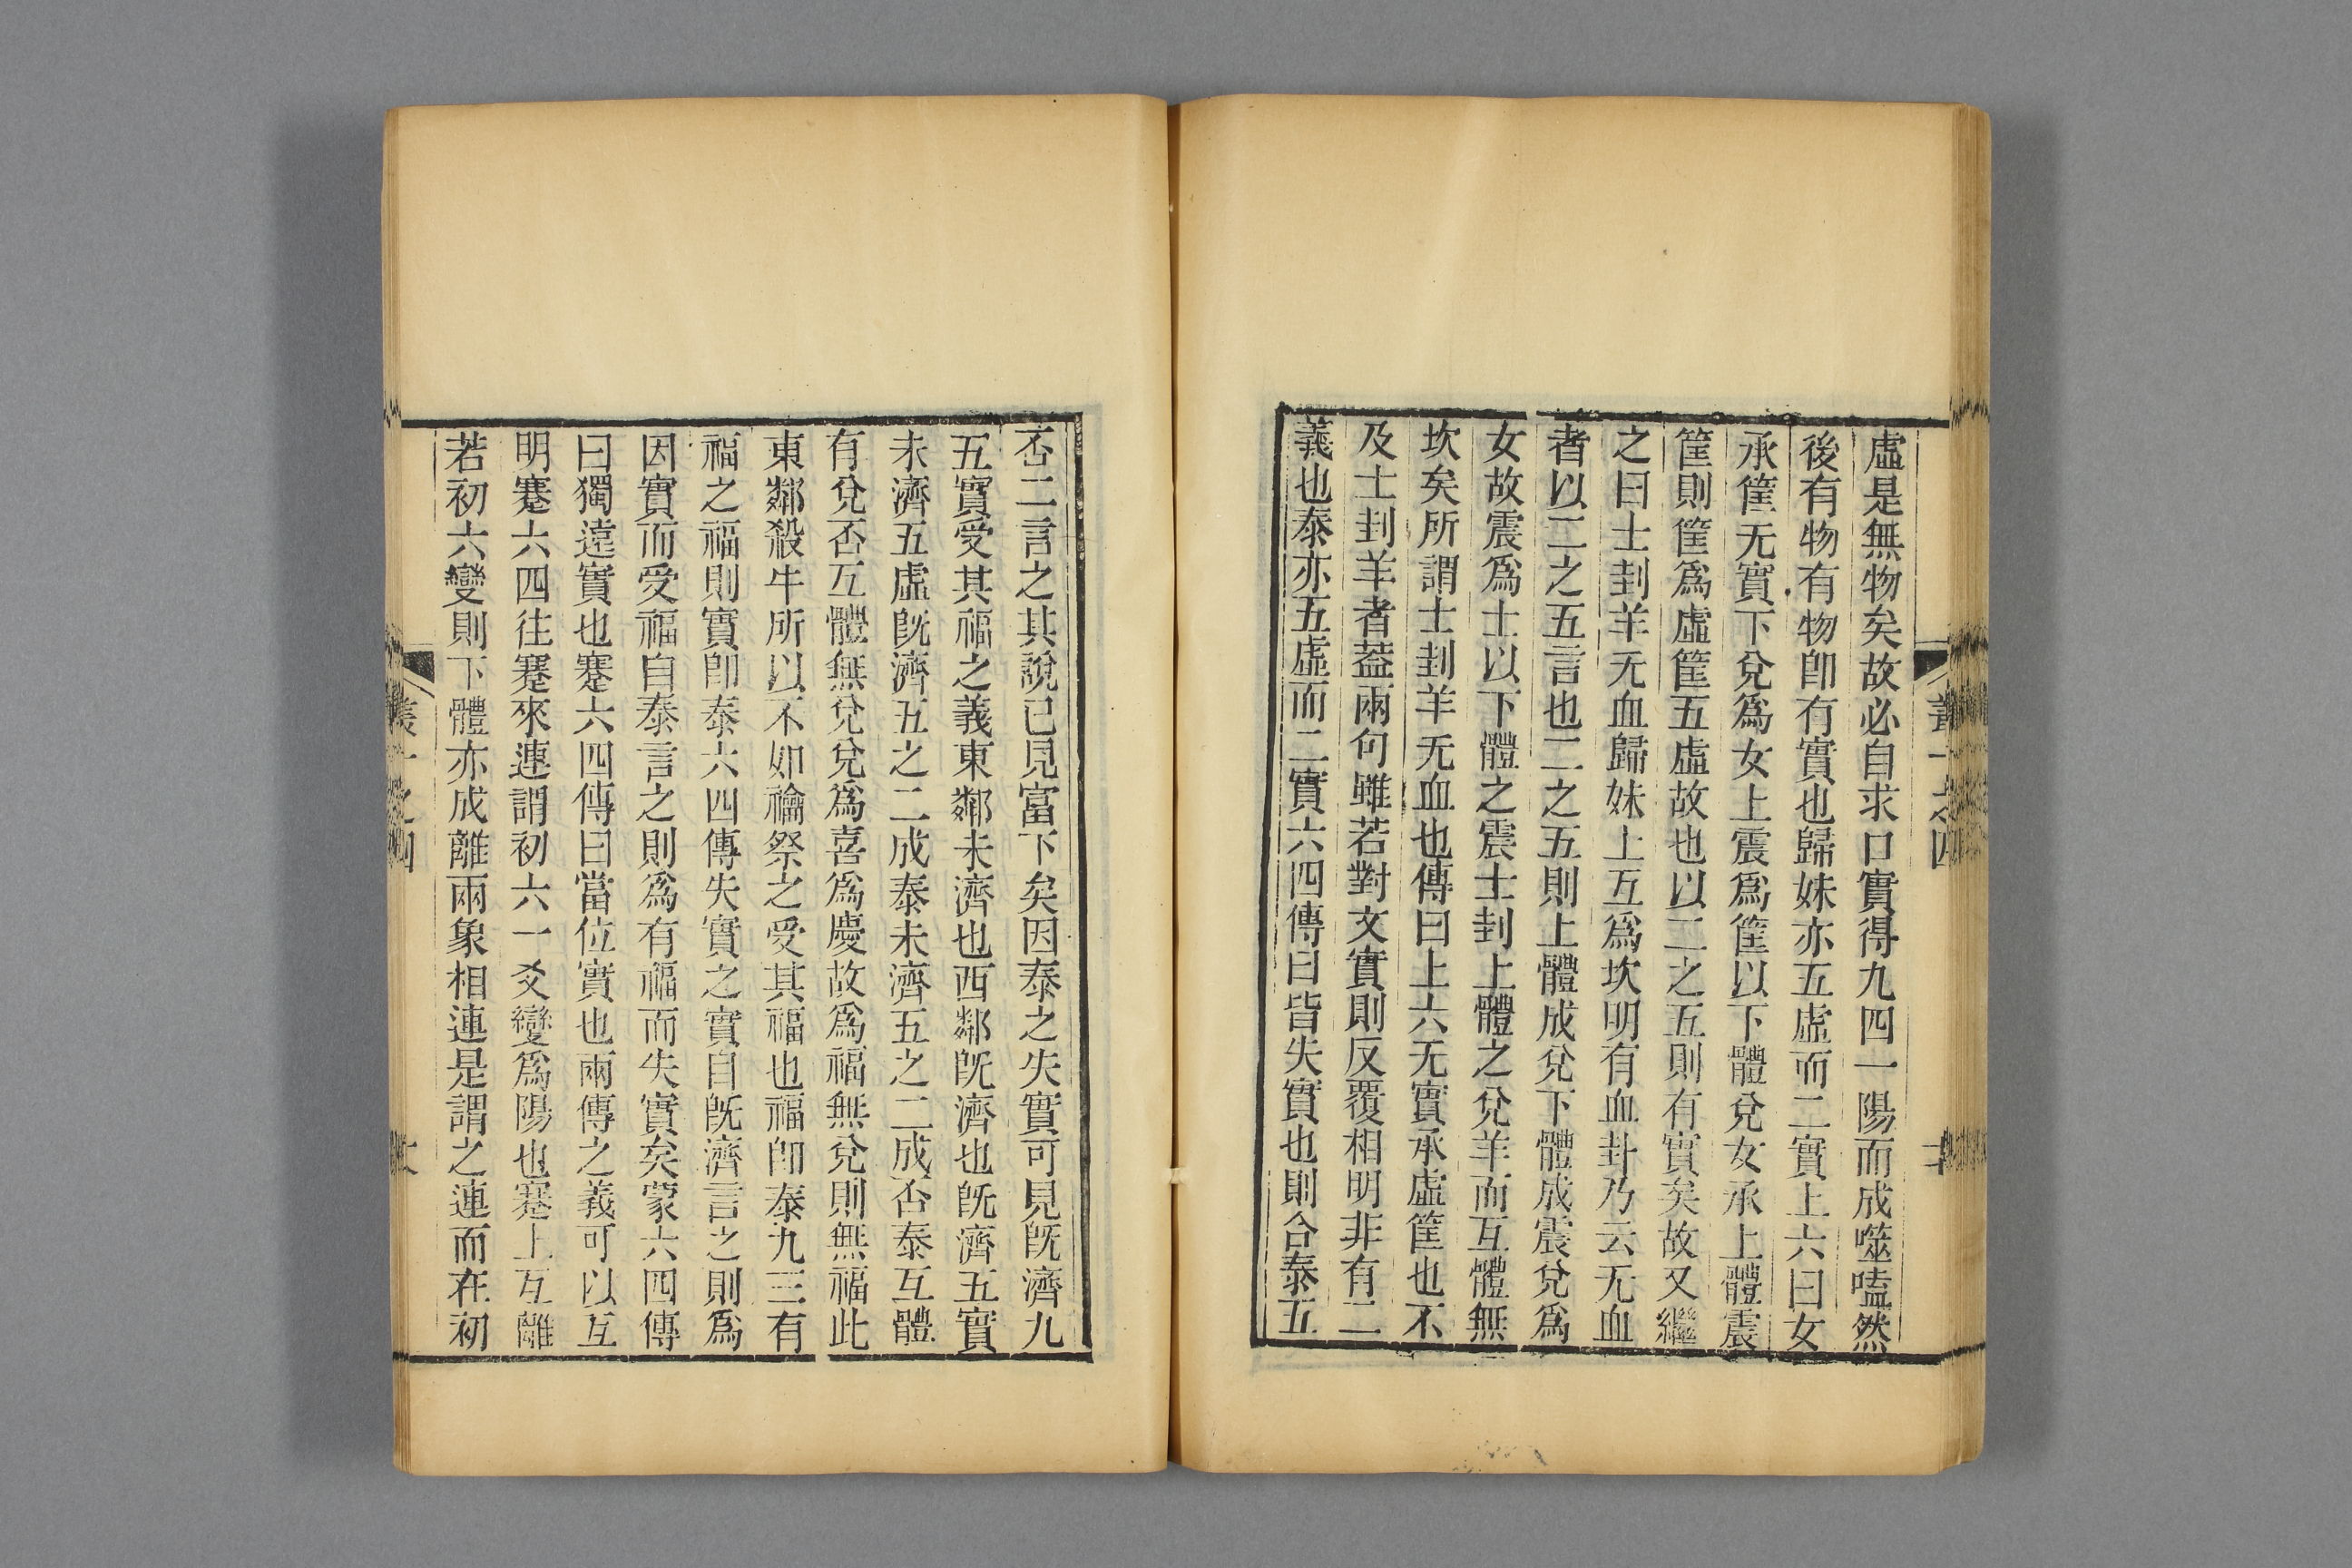 虛是無物矣故必自求口實得九四一陽而成噬嗑然
後有物有物卽有實也歸妹亦五虛而二實上六曰女
承筐无實下兌爲女上震爲筐以下體兌女承上體震
筐則筐爲虛筐五虛故也以二之五則有實矣故又繼
之曰士刲羊无血歸妹上互爲坎明有血卦乃云无血
者以二之五言也二之五則上體成兌下體成震兌爲
女故震爲士以下體之震士刲上體之兌羊而互體無
坎矣所謂士刲羊无血也傳曰上六无實承虛筐也不
及士刲羊者葢兩句雖若對文實則反覆相明非有二
義也泰亦五虛而二實六四傳曰皆失實也則合泰五
否二言之其說已見富下矣因泰之失實可見旣濟九
五實受其福之義東鄰未濟也西鄰旣濟也旣濟五實
未濟五虛旣濟五之二成泰未濟五之二成否泰互體
有兌否互體無兌兌爲喜爲慶故爲福無兌則無福此
東鄰殺牛所以不如禴祭之受其福也福卽泰九三有
福之福則實卽泰六四傳失實之實自旣濟言之則爲
因實而受福自泰言之則爲有福而失實矣蒙六四傳
曰獨遠實也蹇六四傳曰當位實也兩傳之義可以互
明蹇六四往蹇來連謂初六一爻變爲陽也蹇上互離
若初六變則下體亦成離兩象相連是謂之連而在初